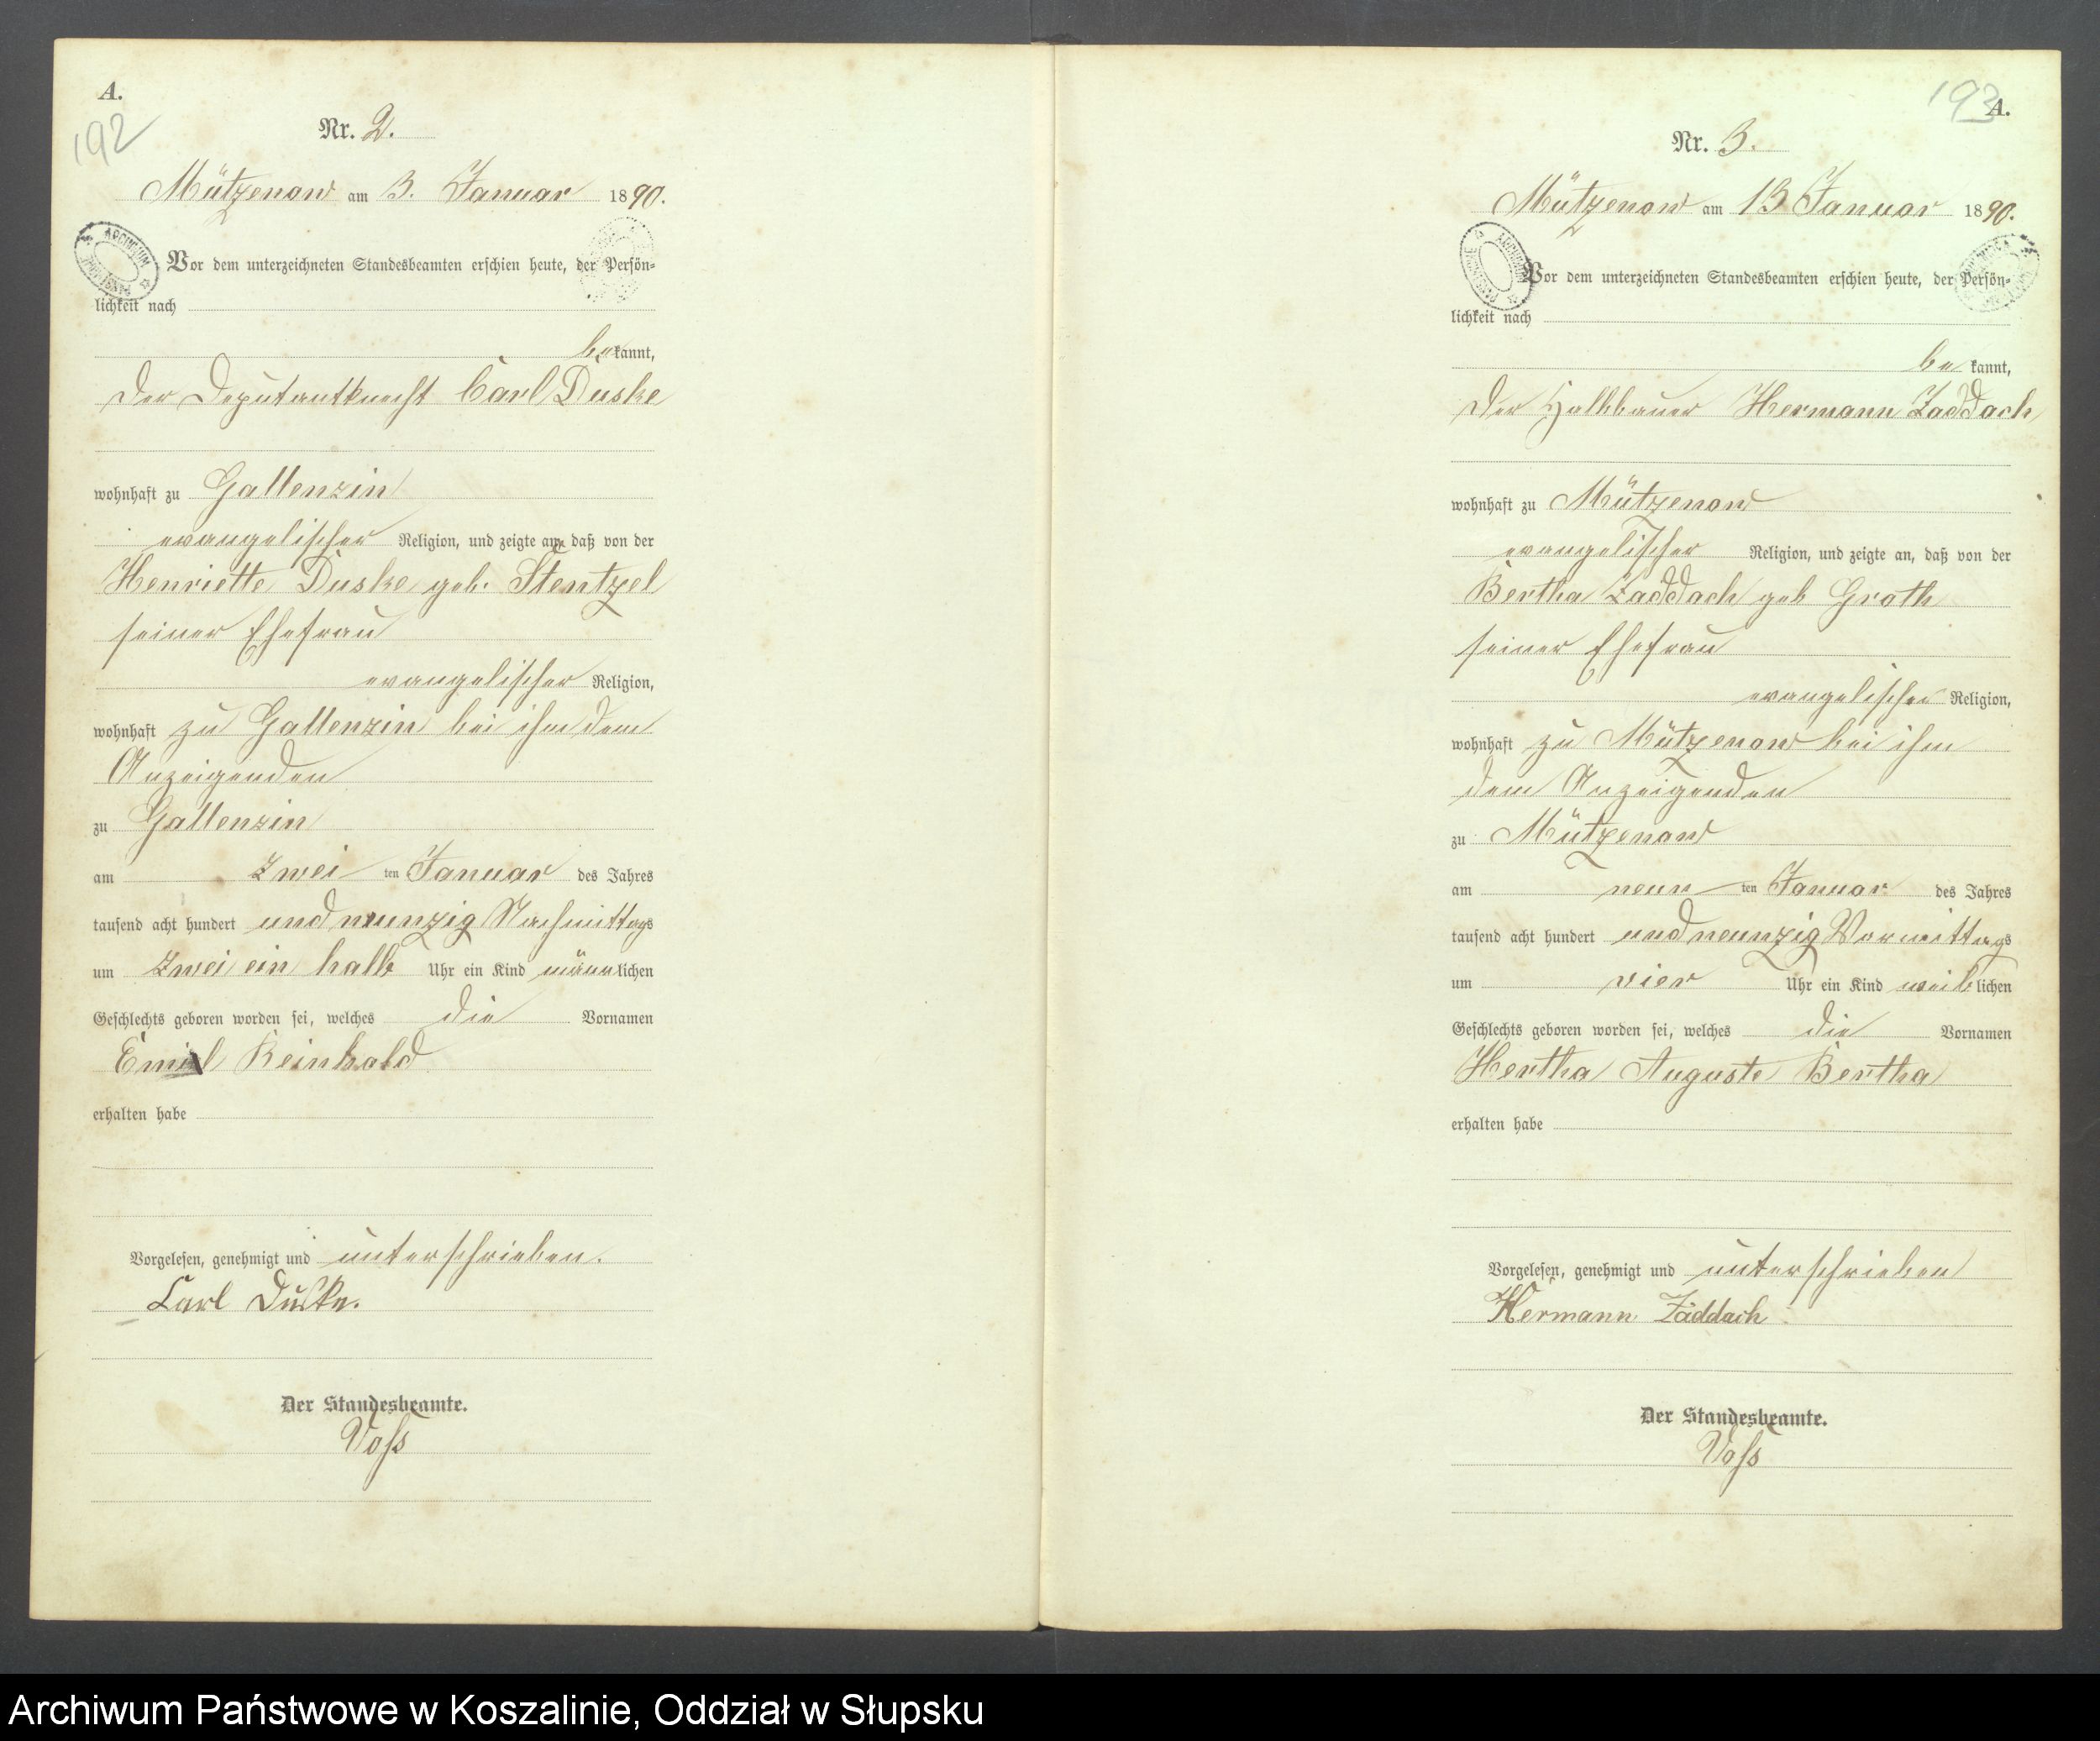 A.
192
Nr. 2.
Mützenow am 3. Januar 1890.
Vor dem unterzeichneten Standesbeamten erschien heute, der Persön-
lichkeit nach
bekannt,
der Deputantknecht Carl Duske
wohnhaft zu Gallenzin
evangelischer Religion, und zeigte an, daß von der
Henriette Duske geb. Stentzel
seiner Ehefrau
evangelischer Religion,
wohnhaft zu Gallenzin bei ihm dem
Anzeigenden
zu Gallenzin
am zwei ten Januar des Jahres
tausend acht hundert und neunzig Nachmittags
um zwei ein halb Uhr ein Kind männlichen
Geschlechts geboren worden sei, welches die Vornamen
Emil Reinhold
erhalten habe
Vorgelesen, genehmigt und unterschrieben.
Carl Duske.
Der Standesbeamte.
Voß
193
A.
Nr. 3.
Mützenow am 13 Januar 1890.
Vor dem unterzeichneten Standesbeamten erschien heute, der Persön-
lichkeit nach
be kannt,
der Halbbauer Hermann Zaddach
wohnhaft zu Mützenow
evangelischer Religion, und zeigte an, daß von der
Bertha Zaddach geb Groth
seiner Ehefrau
evangelischer Religion,
wohnhaft zu Mützenow bei ihm
dem Anzeigenden
zu Mützenow
am neun ten Januar des Jahres
tausend acht hundert und neunzig Vormittags
um vier Uhr ein Kind weiblichen
Geschlechts geboren worden sei, welches die Vornamen
Hertha Auguste Bertha
erhalten habe
Vorgelesen, genehmigt und unterschrieben
Hermann Zaddach
Der Standesbeamte.
Voß
Archiwum Państwowe w Koszalinie, Oddział w Słupsku